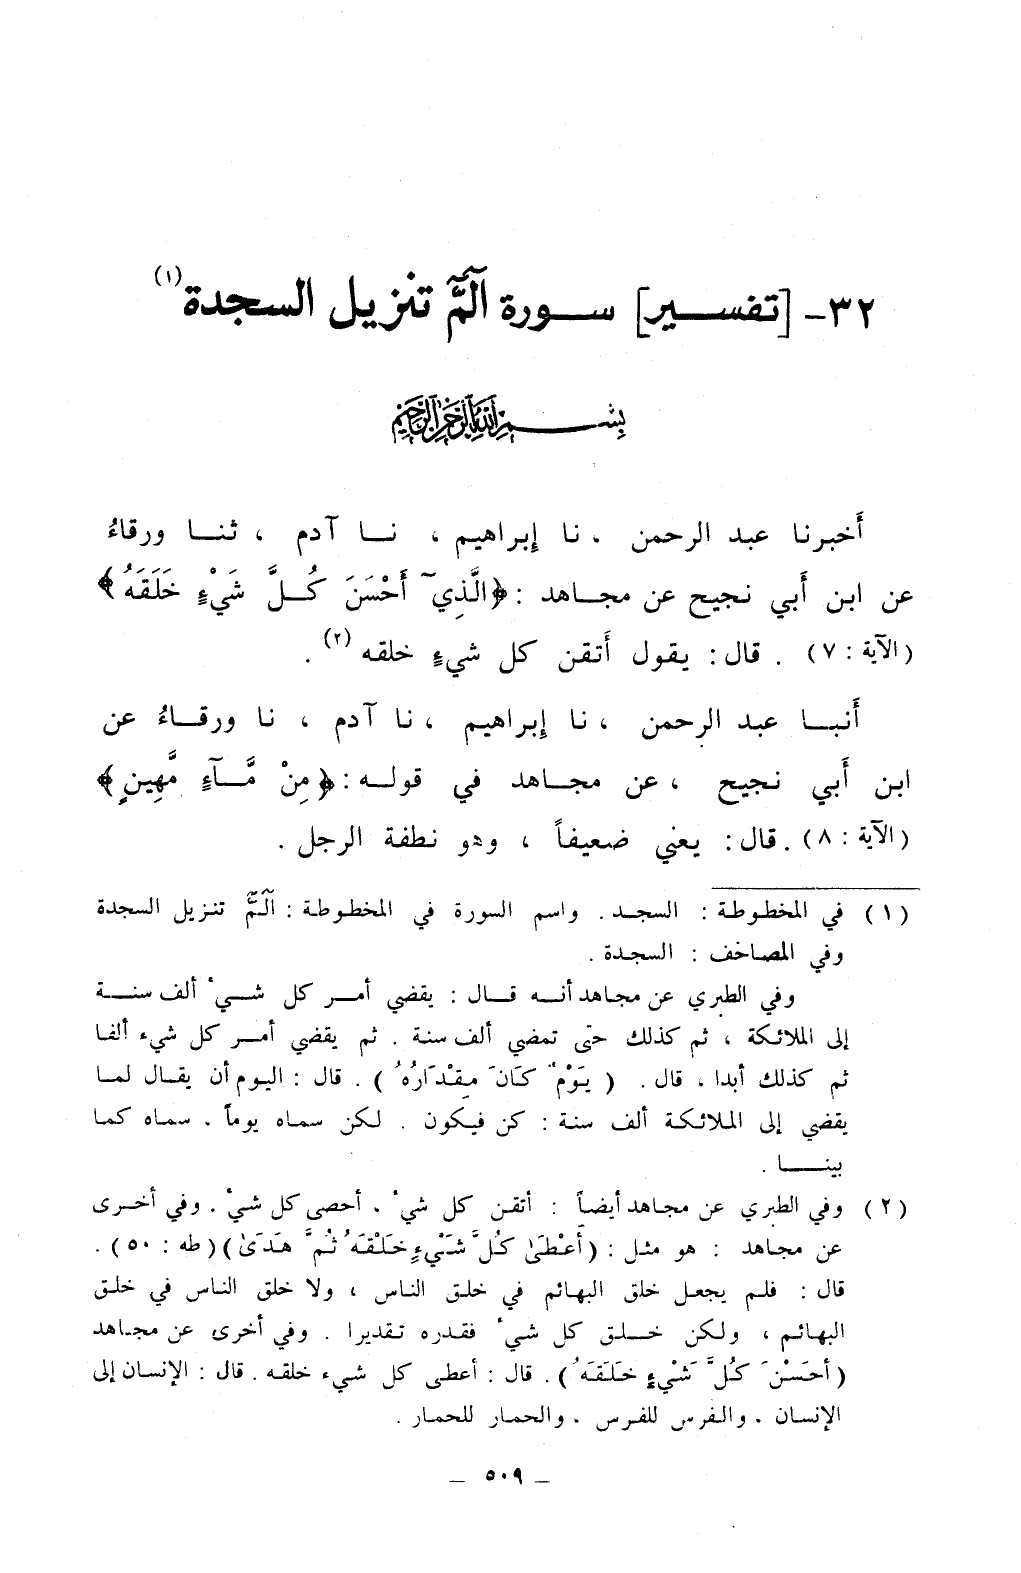 ٣٢- [تفسير] سورة الٓمّٓ تنزيل السجدة (١)
بسم الله الرحمن الرحيم
أَخبرنا عبد الرحمن ، نا إِبراهيم ، نا آدم ، ثنا ورقاءُ
عن ابن أَبي نجيح عن مجاهد : ﴿الَّذِيٓ أَحْسَنَ كُلَّ شَيْءٍ خَلَقَهُ﴾
(الآية : ٧) . قال : يقول أَتقن كل شيءٍ خلقه (٢) .
أَنبا عبد الرحمن ، نا إِبراهيم ، نا آدم ، نا ورقاءُ عن
ابن أَبي نجيح ، عن مجاهد في قوله : ﴿مِنْ مَّآءٍ مَّهِينٍ﴾
(الآية : ٨) . قال : يعني ضعيفاً ، وهو نطفة الرجل .
(١) في المخطوطة : السجد . واسم السورة في المخطوطة : الٓمّٓ تنزيل السجدة
وفي المصاخف : السجدة .
وفي الطبري عن مجاهد أنه قال : يقضي أمر كل شيْ ألف سنة
إلى الملائكة ، ثم كذلك حتى تمضي ألف سنة . ثم يقضي أمر كل شيء ألفا
ثم كذلك أبدا ، قال . ( يَوْمٌ كَانَ مِقْدَارُهُ ) . قال : اليوم أن يقال لما
يقضي إلى الملائكة ألف سنة : كن فيكون . لكن سماه يوماً . سماه كما
بينا .
(٢) وفي الطبري عن مجاهد أيضاً : أتقن كل شيْ . أحصى كل شيْ . وفي أخرى
عن مجاهد : هو مثل : (أَعْطَىٰ كُلَّ شَيْءٍ خَلْقَهُ ثُمَّ هَدَىٰ) (طه : ٥٠) .
قال : فلم يجعل خلق البهائم في خلق الناس ، ولا خلق الناس في خلق
البهائم ، ولكن خلق كل شيْ فقدره تقديرا . وفي أخرى عن مجاهد
(أَحْسَنَ كُلَّ شَيْءٍ خَلَقَهُ) . قال : أعطى كل شيء خلقه . قال : الإنسان إلى
الإنسان . والفرس للفرس . والحمار للحمار .
– ٥٠٩ –